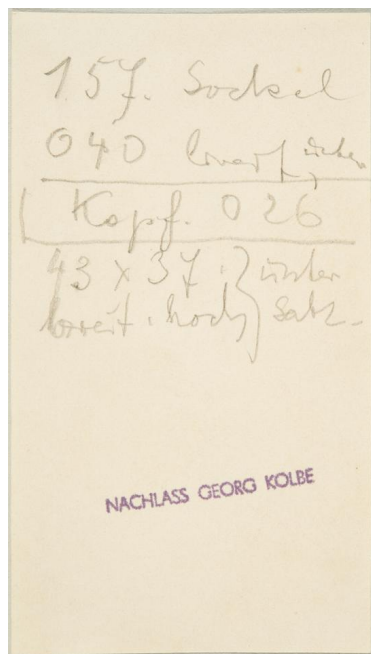 157. Sockel
040 breit
Kopf. 026
43 x 37. unter
breit. hoch satz
NACHLASS GEORG KOLBE